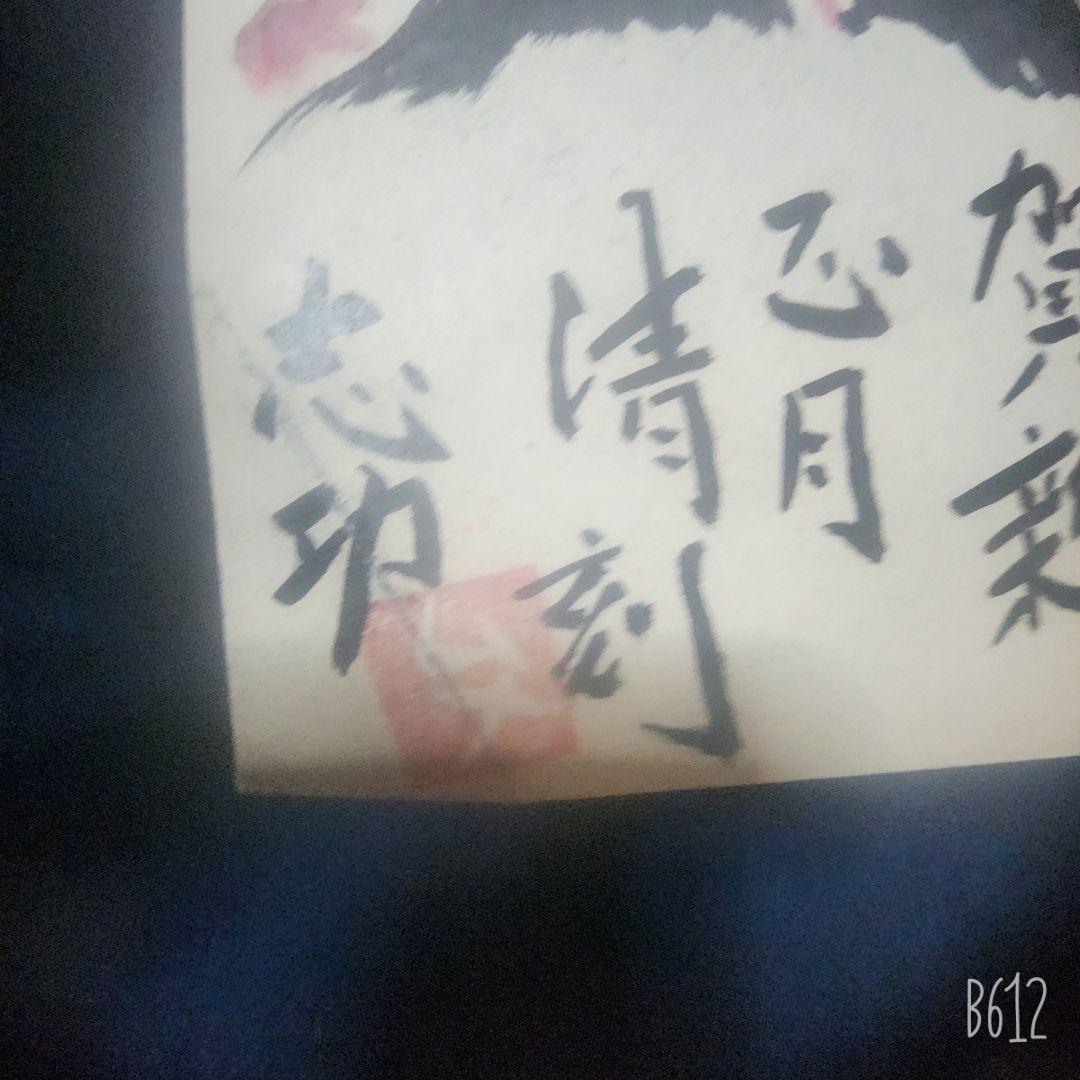 賀新
正月
清刻
志功
B612